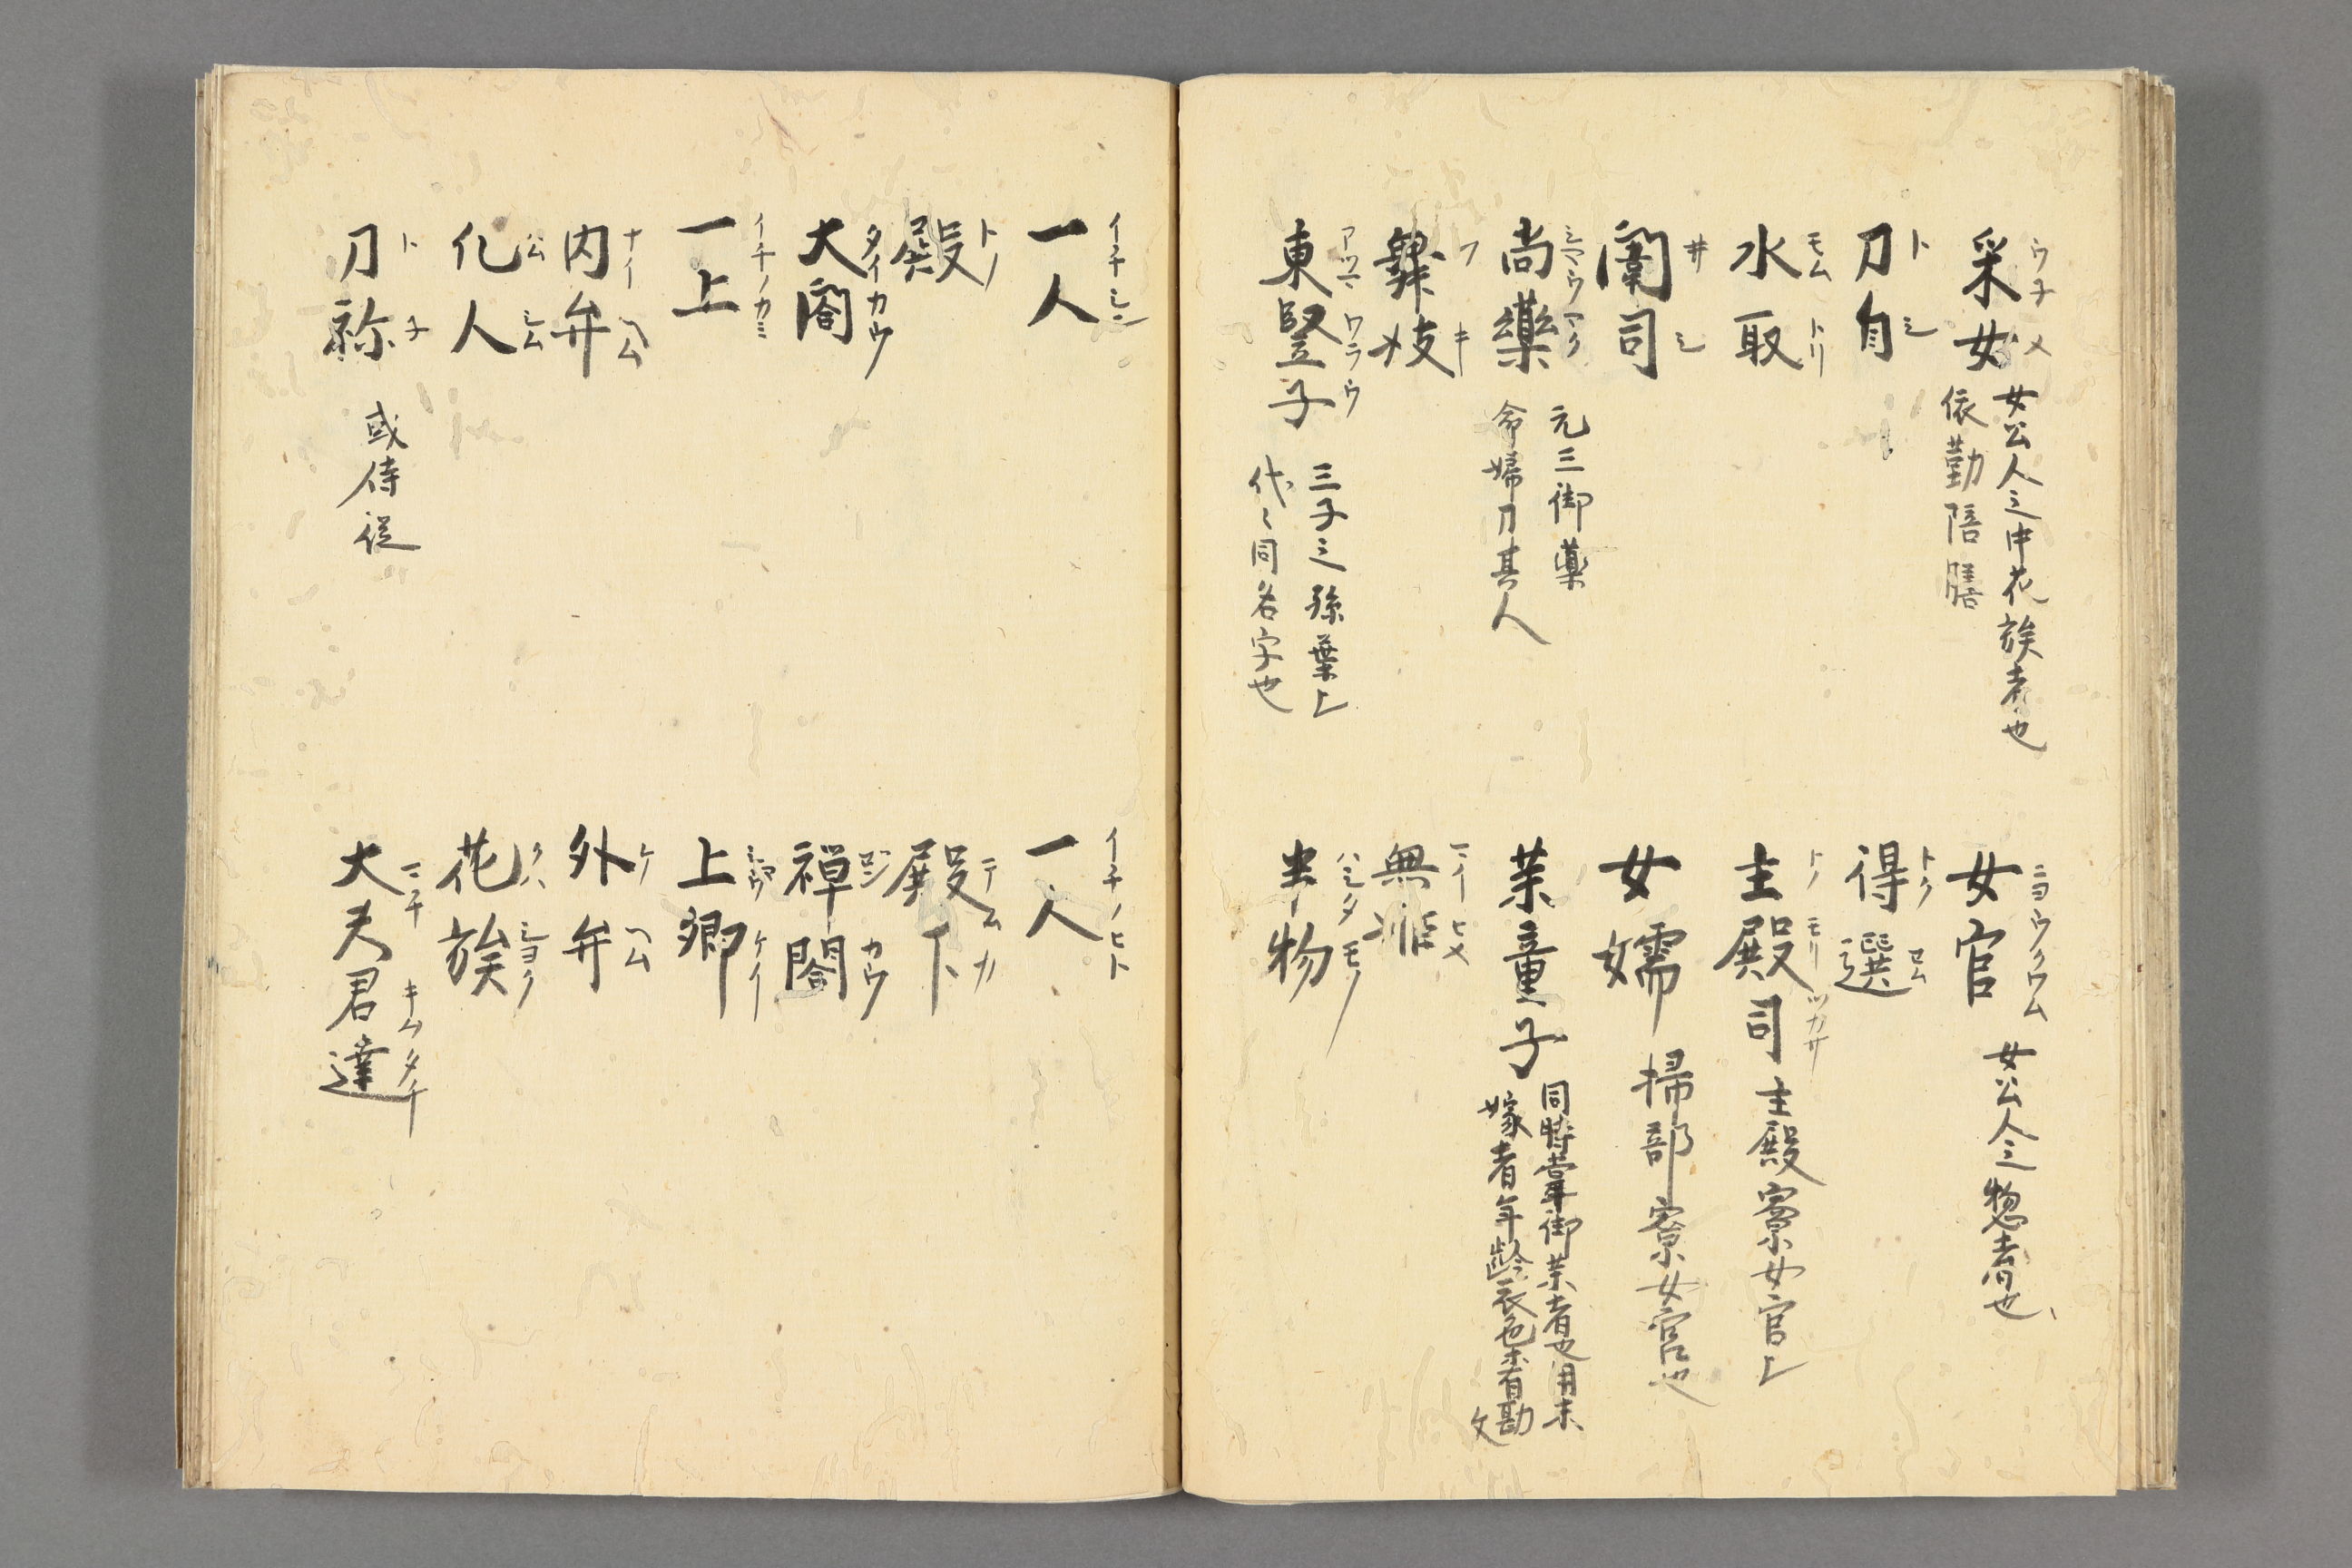 采女 ウネメ 女公人之中花族者也
依勤陪膳
女官 ニヨウクウム 女公人之惣者也
刀自 トシ
得選 トクセム
水取 モムトリ
主殿司 トノモリツカサ 主殿寮女官也
闈司 井シ
女嬬 掃部寮女官也
尚藥 シヤウヤク 元三御藥
命婦刀其人
茉童子 同時嘗御茉者也用未
嫁者年齢衣色未有勘
文
舞妓 フキ
東豎子 アツマワラウ 三子之孫葉也
代々同名字也
半物 ハシタモノ
一人 イチシン
一人 イチノヒト
殿 トノ
殿下 テムカ
大閤 タイカウ
禅閤 センカウ
一上 イチノカミ
上卿 シヤウケイ
内弁 ナイヘム
外弁 ケヘム
化人
花族 クハシヨク
刀祢 トネ 或侍従
大夫君達 キムタチ